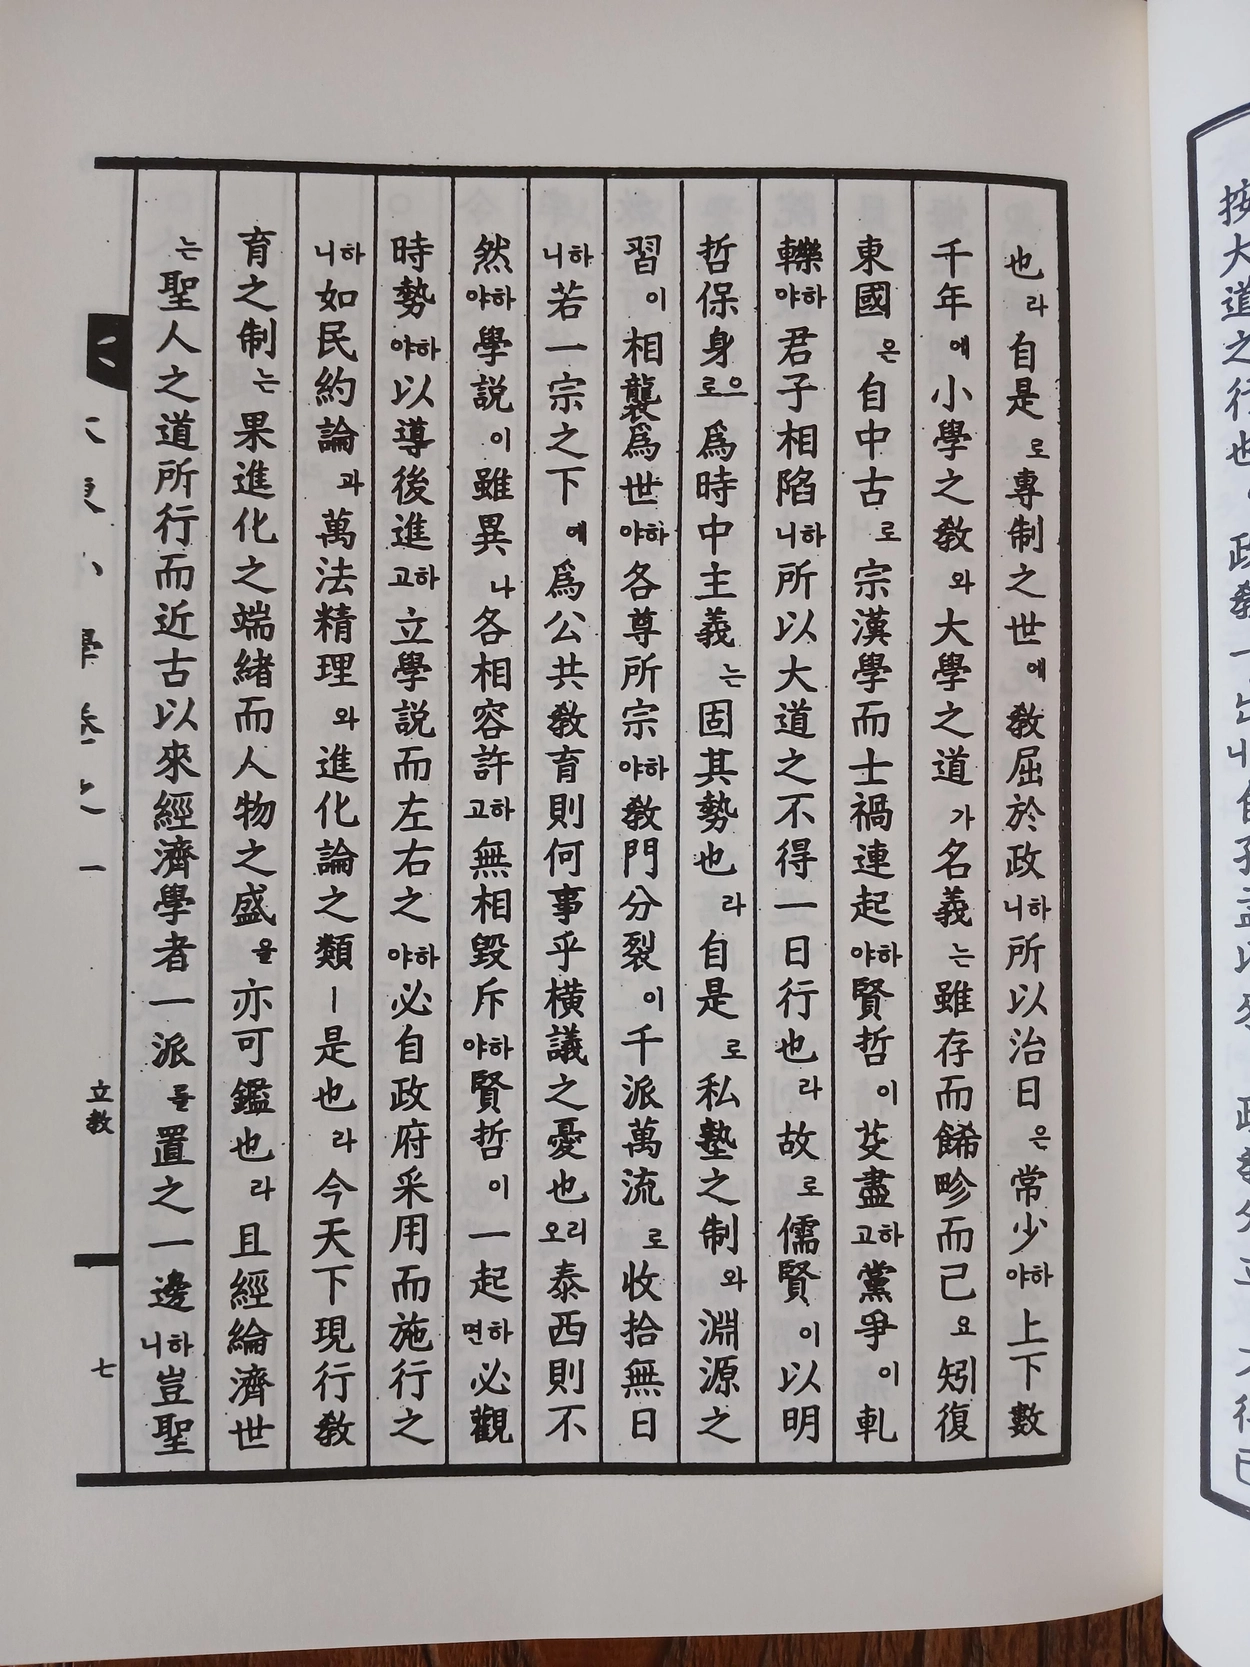 按大道之行也
也라自是로專制之世에敎屈於政하니所以治日은常少하야上下數
千年에小學之敎와大學之道가名義는雖存而餙畛而已요矧復
東國은自中古로宗漢學而士禍連起하야賢哲이芟盡하고黨爭이軋
轢하야君子相陷하니所以大道之不得一日行也라故로儒賢이以明
哲保身으로爲時中主義는固其勢也라自是로私塾之制와淵源之
習이相襲爲世하야各尊所宗하야敎門分裂이千派萬流로收拾無日
하니若一宗之下에爲公共敎育則何事乎橫議之憂也리오泰西則不
然하야學說이雖異나各相容許하고無相毀斥하야賢哲이一起하면必觀
時勢하야以導後進하고立學說而左右之하야必自政府采用而施行之
하니如民約論과萬法精理와進化論之類ㅣ是也라今天下現行敎
育之制는果進化之端緖而人物之盛을亦可鑑也라且經綸濟世
는聖人之道所行而近古以來經濟學者一派를置之一邊하니豈聖
小學卷之一
立敎
七